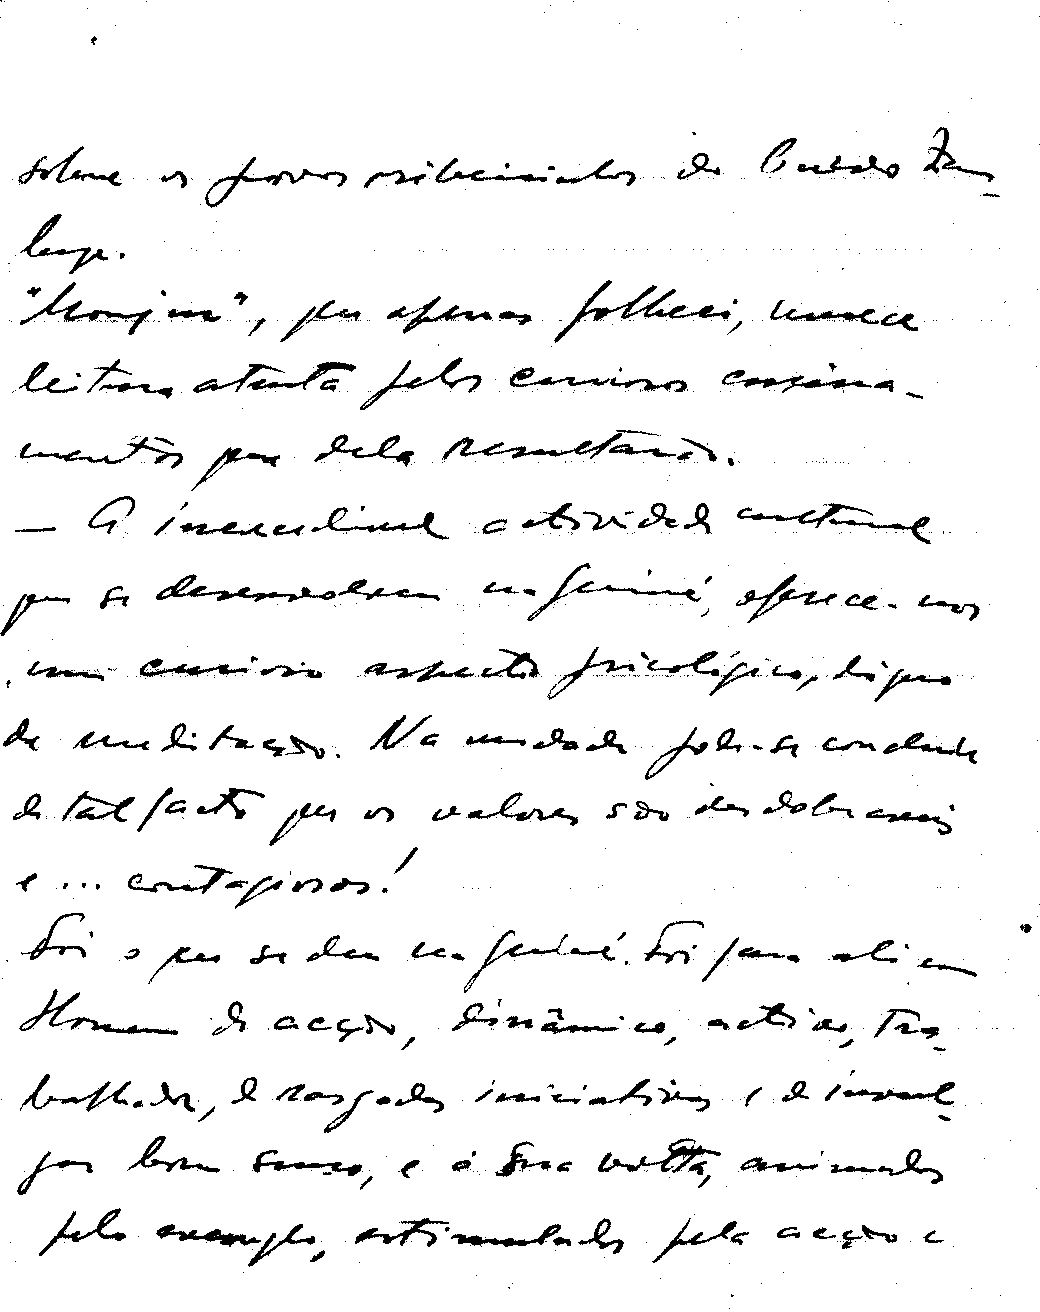 sobre os povos ribeirinhos do Cuito Zam-
beze.
"Monjur", que apenas folheei, merece
leitura atenta pelos curiosos ensina-
mentos que dela resultarão.
— A incansável actividade cultural
que se desenvolveu na Guiné, oferece-nos
um curioso aspecto psicológico, digno
de meditação. Na verdade pode-se concluir
de tal facto que os valores são desdobráveis
e ... contagiosos!
Foi o que se deu na Guiné. Foi para ali um
Homem de acção, dinâmico, activo, tra-
balhador, de rasgadas iniciativas e de invul-
gar bom senso, e à sua volta, animados
pelo exemplo, estimulados pela acção e